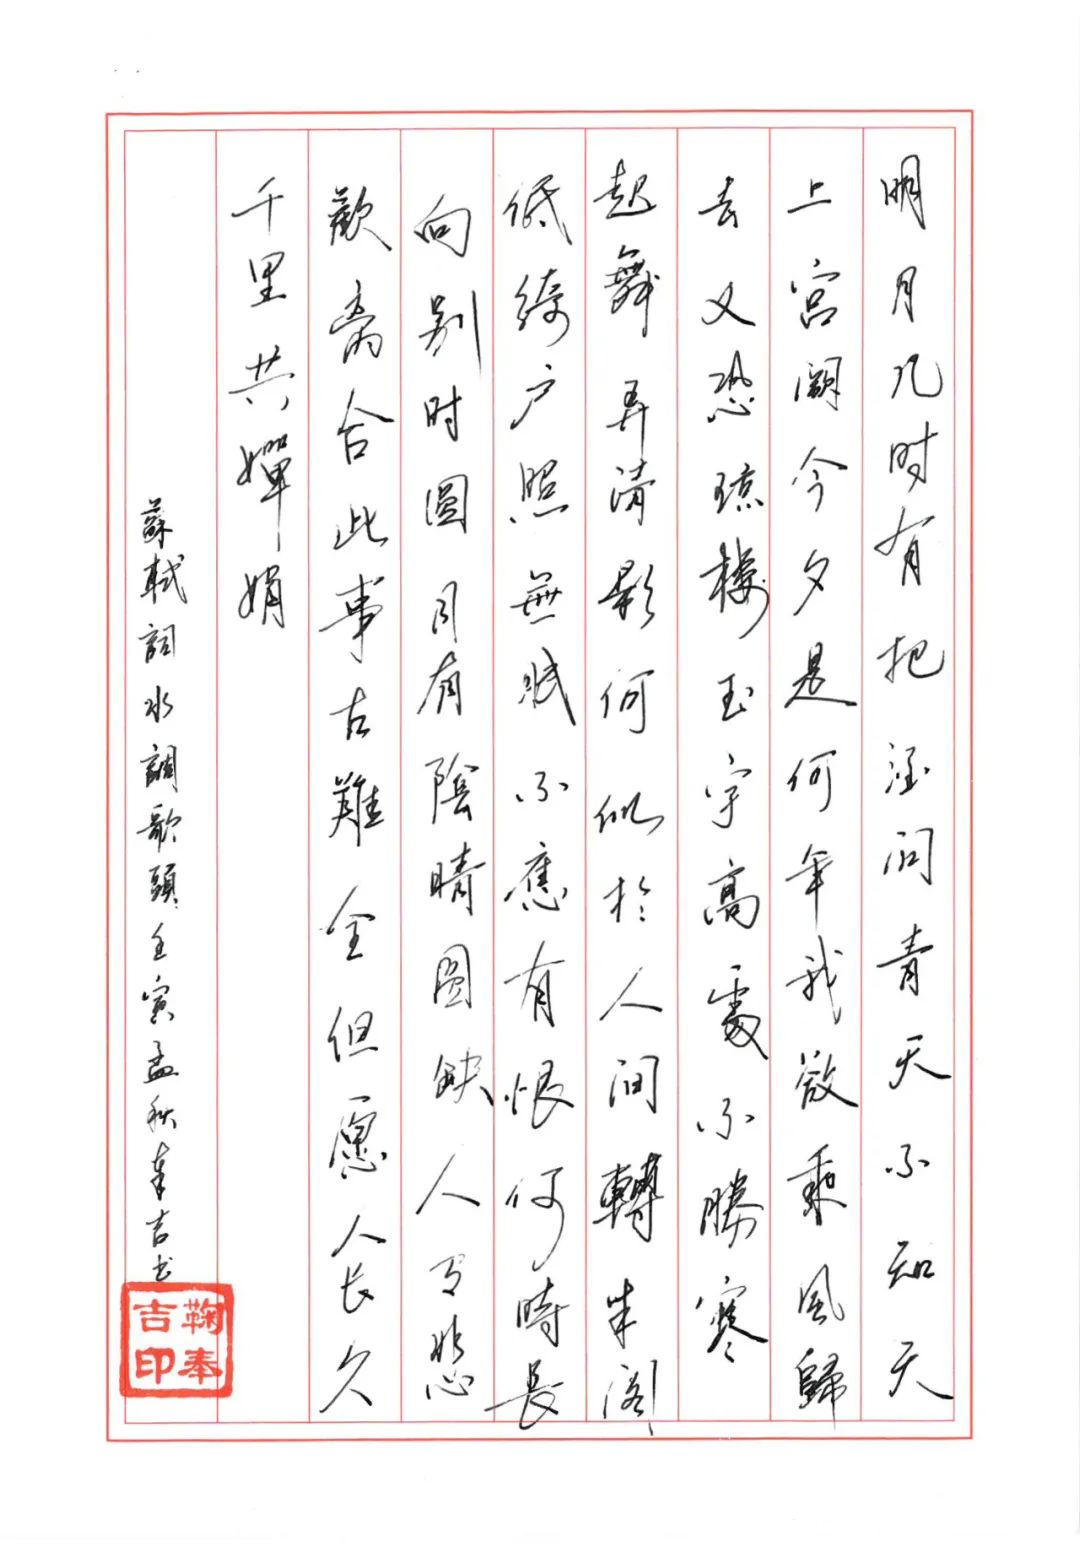 明月几时有把酒问青天不知天
上宫阙今夕是何年我欲乘風歸
去又恐琼樓玉宇高處不勝寒
起舞弄清影何似於人间轉朱阁
低绮户照無眠不應有恨何時長
向别时圓月有陰晴圓缺人有悲
歡离合此事古難全但愿人长久
千里共嬋娟
蘇軾詞水調歌頭壬寅孟秋奉吉书
鞠奉吉印